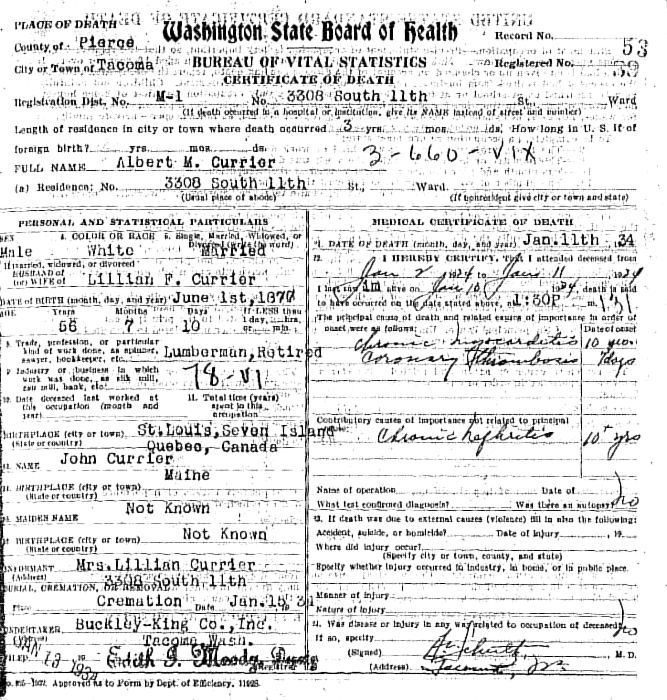 PLACE OF DEATH
Washington State Board of Health
Record No. 53
County of Pierce
City or Town of Tacoma
BUREAU OF VITAL STATISTICS
Registered No.
CERTIFICATE OF DEATH
Registration Dist. No. M-1 No. 3308 South 11th St., Ward
(If death occurred in a hospital or institution, give its NAME instead of street and number)
Length of residence in city or town where death occurred 3 yrs. mos. ds. How long in U. S. if of
foreign birth? yrs. mos. ds.
3-660-VIX
FULL NAME Albert M. Currier
(a) Residence; No. 3308 South 11th St., Ward.
(Usual place of abode) (If nonresident give city or town and state)
PERSONAL AND STATISTICAL PARTICULARS
4. COLOR OR RACE 5. Single, Married, Widowed, or
Divorced (write the word)
Male White Married
If married, widowed, or divorced
HUSBAND of
(or) WIFE of Lillian F. Currier
DATE OF BIRTH (month, day, and year) June 1st, 1877
AGE Years Months Days If LESS than
56 7 10
8. Trade, profession, or particular
kind of work done, as spinner,
sawyer, bookkeeper, etc. Lumberman, Retired
9. Industry or business in which
work was done, as silk mill,
saw mill, bank, etc. 78-VI
10. Date deceased last worked at
this occupation (month and
year)
11. Total time (years)
spent in this
occupation
BIRTHPLACE (city or town) St.Louis, Seven Island
(State or country) Quebec, Canada
NAME John Currier
BIRTHPLACE (city or town) Maine
(State or country)
MAIDEN NAME Not Known
BIRTHPLACE (city or town) Not Known
(State or country)
INFORMANT Mrs. Lillian Currier
(Address) 3308 South 11th
BURIAL, CREMATION, OR REMOVAL
Place Cremation Date Jan.
UNDERTAKER Buckley-King Co., Inc.
Tacoma, Wash.
FILED JAN 13 1934 Edith G. Moody
MEDICAL CERTIFICATE OF DEATH
DATE OF DEATH (month, day, and year) Jan. 11th 34
I HEREBY CERTIFY, That I attended deceased from
Jan 2 1934 to Jan 11 1934
I last saw him alive on Jan 10 1934, death is said
to have occurred on the date stated above, at 1:30P m.
The principal cause of death and related causes of importance in order of
onset were as follows: Date of onset
Chronic myocarditis 10 yrs.
Coronary Thrombosis
Contributory causes of importance not related to principal
Chronic nephritis 10+ yrs
Name of operation Date of
What test confirmed diagnosis? Was there an autopsy? No
23. If death was due to external causes (violence) fill in also the following:
Accident, suicide, or homicide? Date of injury , 19
Where did injury occur?
(Specify city or town, county, and state)
Specify whether injury occurred in industry, in home, or in public place.
Manner of injury
Nature of injury
Was disease or injury in any way related to occupation of deceased? No
If so, specify
(Signed) M. D.
(Address) Tacoma
Approved as to Form by Dept. of Efficiency. 11928